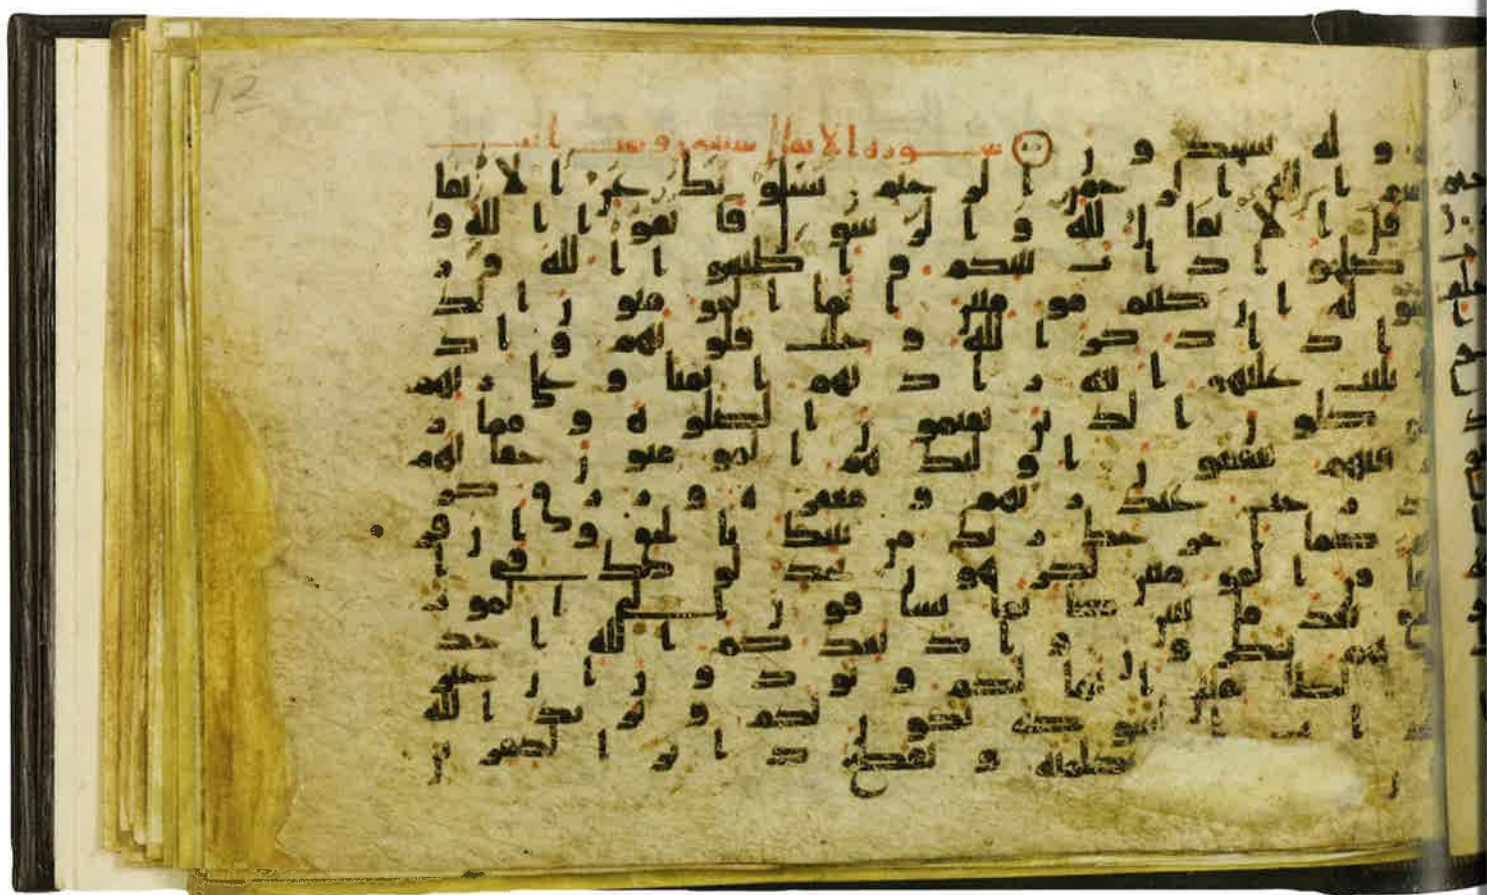 وله يسجدون سورة الانفال سبعون وست ايت
بسم الله الرحمن الرحيم يسلونك عن الانفا
ل قل الانفال لله والرسول فاتقوا الله و
اصلحوا ذات بينكم واطيعوا الله ور
سوله ان كنتم مومنين انما المومنون الذ
ين اذا ذكر الله وجلت قلوبهم واذا
تليت عليهم ايته زادتهم ايمنا وعلى ربهم
يتوكلون الذين يقيمون الصلوة ومما ر
زقنهم ينفقون اوليك هم المومنون حقا لهم
درجت عند ربهم ومغفرة ورزق كر
يم كما اخرجك ربك من بيتك بالحق وان فر
يقا من المومنين لكرهون يجدلونك في ا
لحق بعد ما تبين كانما يساقون الى الموت
وهم ينظرون واذ يعدكم الله احد
ى الطايفتين انها لكم وتودون ان غير
ذات الشوكة تكون لكم ويريد الله
بكلمته ويقطع دابر الكفرين
12